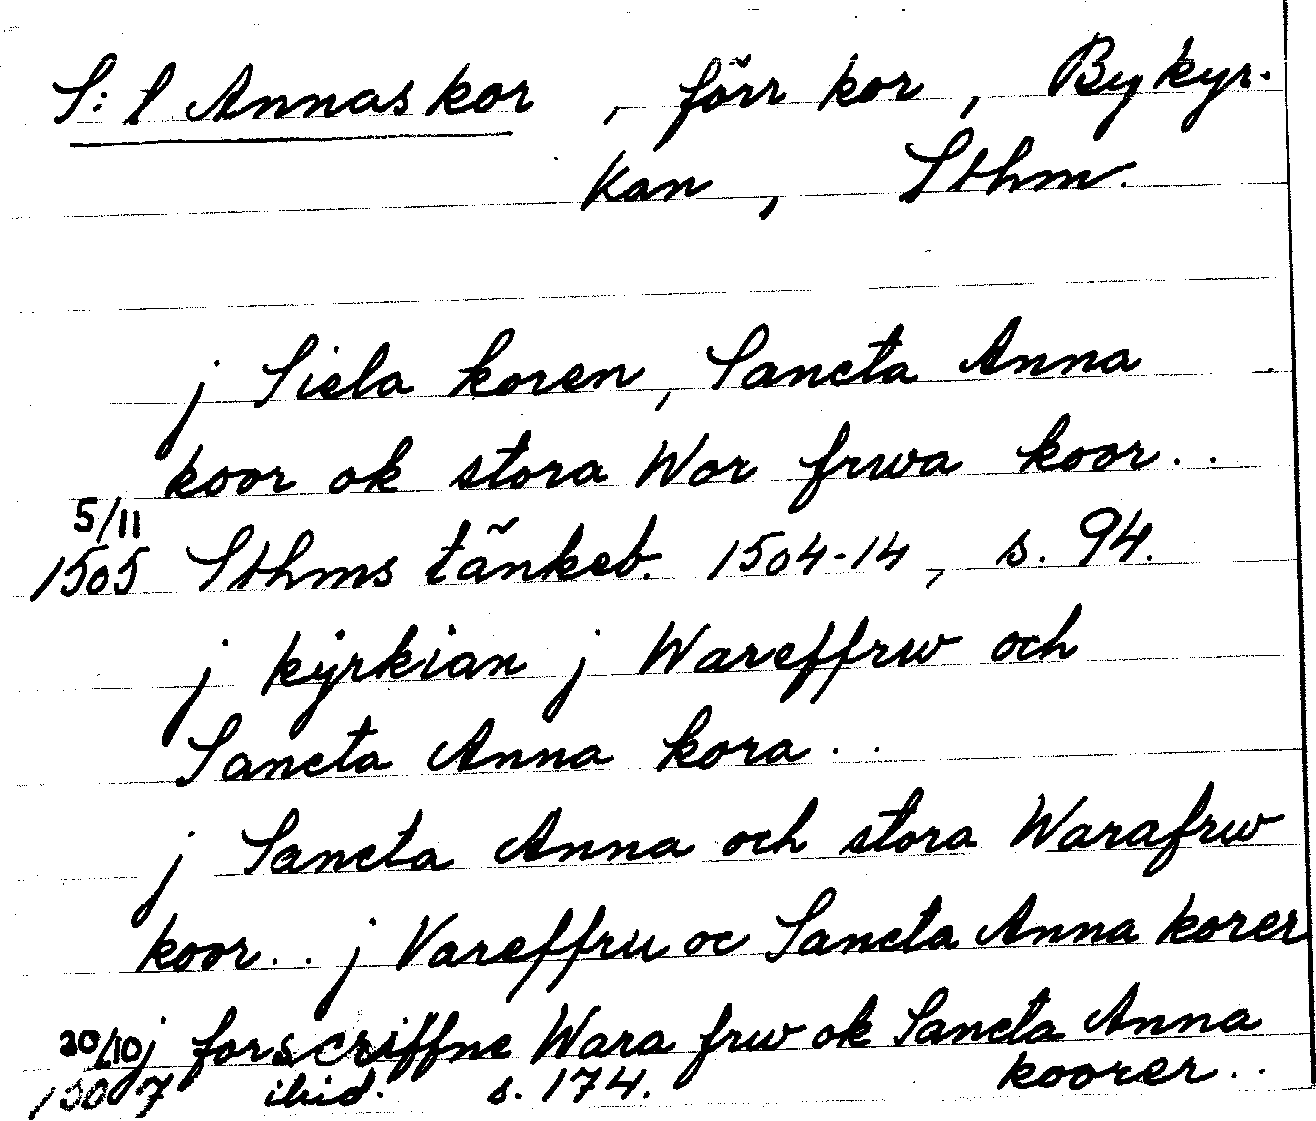 S:t Annas kor, förr kor, Bykyr-
kan, Sthm.
j Siela koren, Sancta Anna
koor ok stora Wor frwa koor..
5/11
1505 Sthms tänkeb. 1504-14, s. 94.
j kÿrkian j Wareffrw och
Sancta Anna kora..
j Sancta Anna och stora Warafrw
koor.. j Vareffru oc Sancta Anna korer
20/10 j forscriffne Wara frw ok Sancta Anna
koorer..
1507 ibid. s. 174.